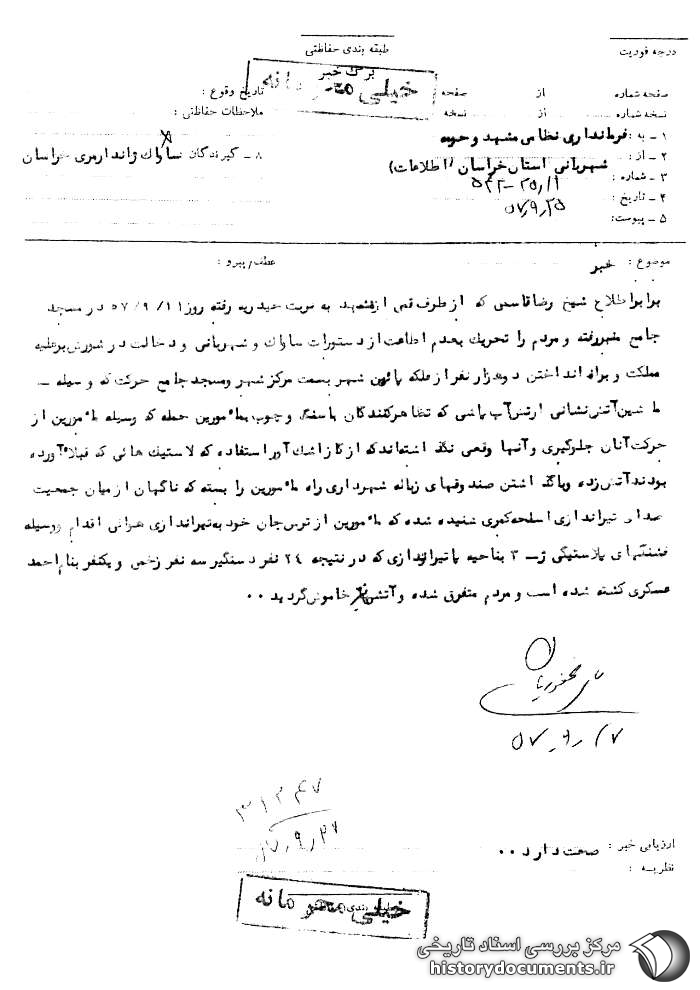 طبقه بندی حفاظتی
درجه فوریت
برگ خبر
خیلی محرمانه
صفحه شماره از صفحه
تاریخ وقوع :
نسخه شماره : از نسخه
ملاحظات حفاظتی :
۱ - به : فرمانداری نظامی مشهد و حومه
۸ - گیرندگان ساواک ژاندارمری خراسان
۲ - از : شهربانی استان خراسان (اطلاعات)
۳ - شماره :
۴ - تاریخ : ۵۷٫۹٫۲۵
۵ - پیوست:
موضوع : خبر
عطف/پیرو :
برابر اطلاع شیخ رضا قاسمی که از طرف قمی از مشهد به تربت حیدریه رفته روز ۱۱ /۹ /۵۷ در مسجد
جامع منبر رفته و مردم را تحریک بعدم اطاعت از دستورات ساواک و شهربانی و دخالت در شورش بر علیه
مملکت و براه انداختن دو هزار نفر از فلکه پائین شهر بسمت مرکز شهر و مسجد جامع حرکت که وسیله -
ماشین آتش نشانی ارتش آب پاشی که تظاهر کنندگان با سنگ و چوب بمامورین حمله که وسیله مامورین از
حرکت آنان جلوگیری و آنها وقعی نگذاشته اند که از گاز اشک آور استفاده که لاستیک هائی که قبلا آورده
بودند آتش زده و با گذاشتن صندوقهای زباله شهرداری راه مامورین را بسته که ناگهان از میان جمعیت
صدای تیراندازی اسلحه کمری شنیده شده که مامورین از ترس جان خود به تیراندازی هوائی اقدام و وسیله
فشنگهای پلاستیکی ژ-۳ بناحیه پا تیراندازی که در نتیجه ۲۴ نفر دستگیر سه نفر زخمی و یکنفر بنام احمد
عسکری کشته شده است و مردم متفرق شده و آتش نیز خاموش گردید ۰۰
۵۷٫۹٫۲۷
۳۱۲۴۷
ارزیابی خبر : صحت دارد ۰۰
نظریه :
طبقه بندی حفاظتی
خیلی محرمانه
مرکز بررسی اسناد تاریخی
historydocuments.ir